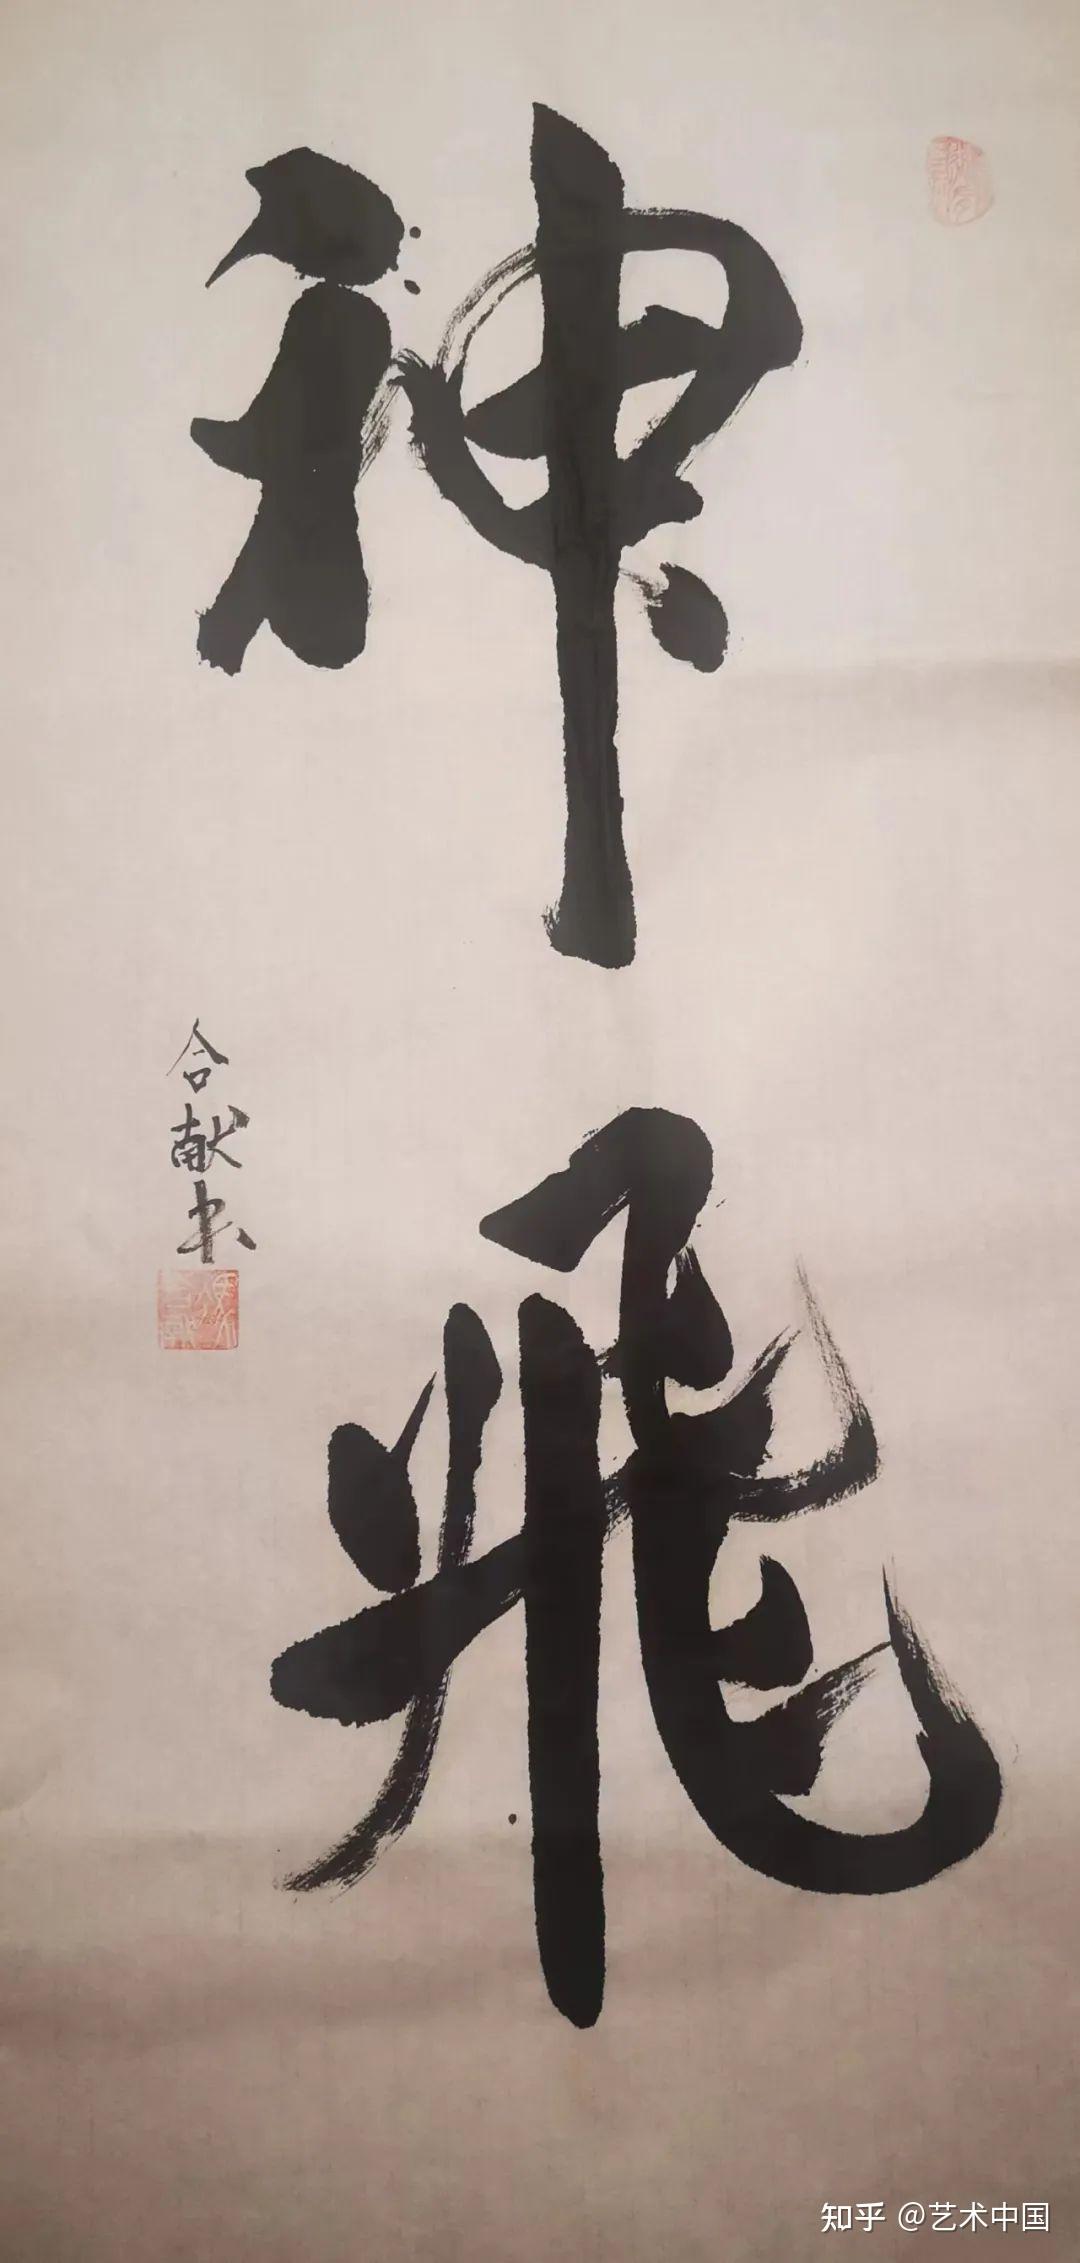 神飛
合献书
知乎 @艺术中国